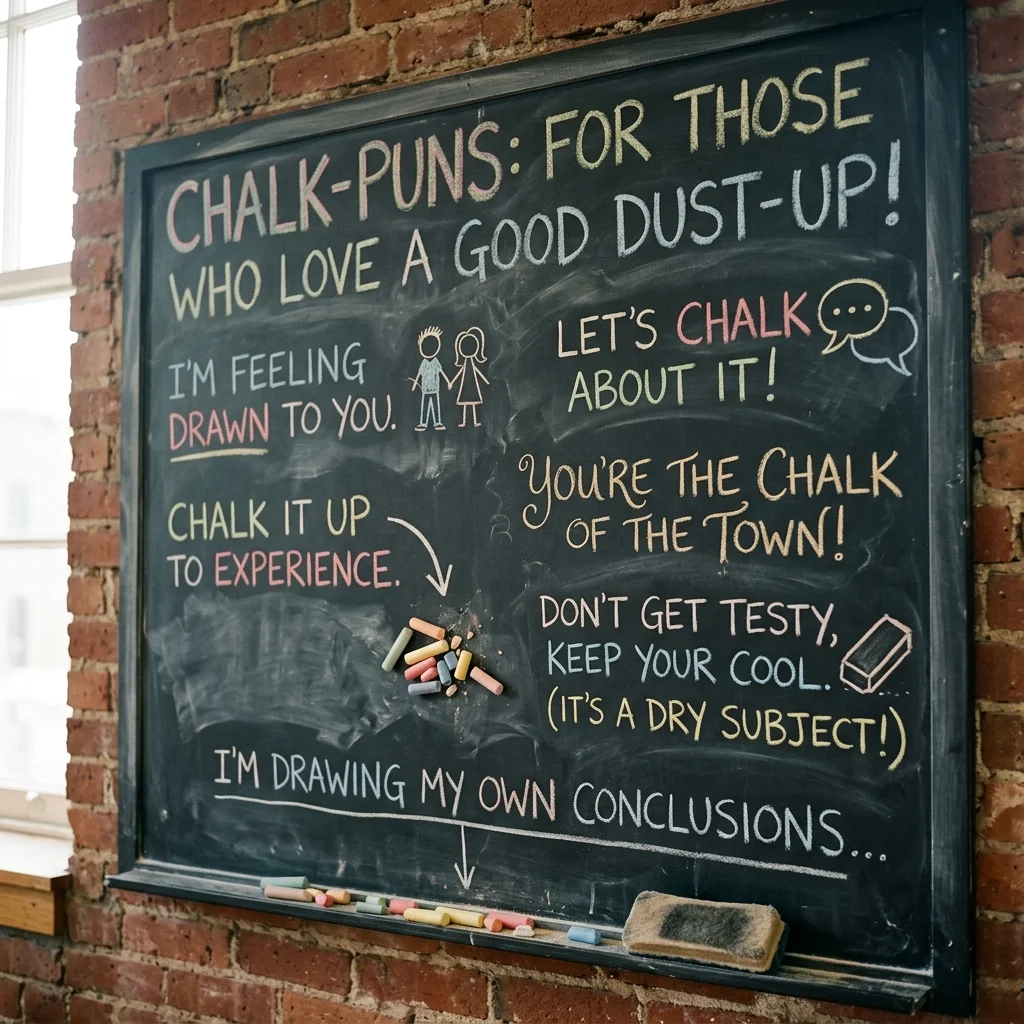 CHALK-PUNS: FOR THOSE
WHO LOVE A GOOD DUST-UP!
I'M FEELING
DRAWN TO YOU.
LET'S CHALK
ABOUT IT!
CHALK IT UP
TO EXPERIENCE.
YOU'RE THE CHALK
OF THE TOWN!
DON'T GET TESTY,
KEEP YOUR COOL.
(IT'S A DRY SUBJECT!)
I'M DRAWING MY OWN CONCLUSIONS...